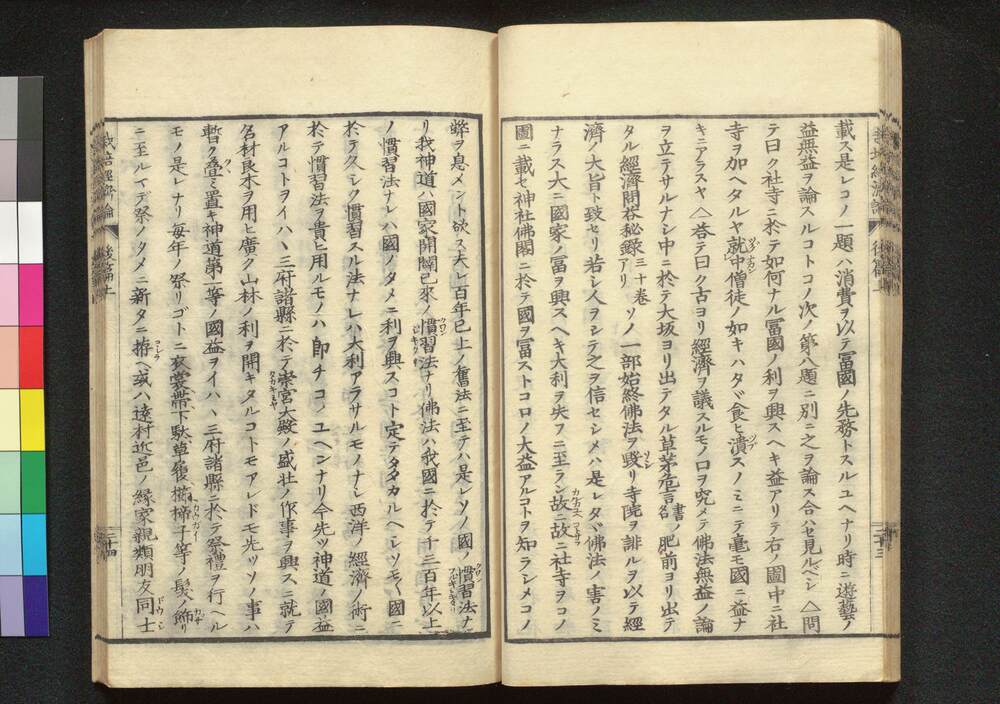 載ス是レコノ一題ハ消費ヲ以テ富國ノ先務トスルユヘナリ時ニ遊藝ノ
益無益ヲ論スルコトコノ次ノ第八題ニ別ニ之ヲ論ス合ハセ見ルベシ△問
テ曰ク社寺ニ於テ如何ナル冨國ノ利ヲ興スヘキ益アリテ右ノ圖中ニ社
寺ヲ加ヘタルヤ就中僧徒ノ如キハタヾ食ヒ潰スノミニテ毫モ國ニ益ナ
キニアラスヤ△荅テ曰ク古ヨリ經濟ヲ議スルモノ口ヲ究メテ佛法無益ノ論
ヲ立テサルナシ中ニ於テ大坂ヨリ出テタル草茅危言書名ノ肥前ヨリ出テ
タル經濟問荅秘錄三十卷アリソノ一部始終佛法ヲ毀リ寺院ヲ誹ルヲ以テ經
濟ノ大旨ト致セリ若シ人ヲシテ之ヲ信セシメハ是レタヾ佛法ノ害ノミ
ナラス大ニ國家ノ冨ヲ興スヘキ大利ヲ失フニ至ラン故ニ故ニ社寺ヲコノ
圖ニ載セ神社佛閣ニ於テ國ヲ冨ストコロノ大益アルコトヲ知ラシメコノ
後篇上
二十三
弊ヲ息メント欲ス夫レ百年已上ノ舊法ニ至テハ是レソノ國ノ慣習法ナ
リ我神道ハ國家開闢已來ノ慣習法ナリ佛法ハ我國ニ於テ千三百年以上
ノ慣習法ナレハ國ノタメニ利ヲ興スコト定テタヽカルヘシソモ〱國ニ
於テ久シク慣習スル法ナレハ大利アラサルモノナシ西洋ノ經濟ノ術ニ
於テ慣習法ヲ貴ヒ用ルモノハ即チコノユヘンナリ今先ツ神道ノ國益
アルコトヲイハヽ三府諸縣ニ於テ崇宮大殿ノ盛壮ノ作事ヲ興スニ就テ
名材良木ヲ用ヒ廣ク山林ノ利ヲ開キタルコトモアレドモ先ツソノ事ハ
暫ク疊ミ置キ神道第一等ノ國益ヲイハヽ三府諸縣ニ於テ祭禮ヲ行ヘル
モノ是レナリ毎年ノ祭リゴトニ衣裳帶下駄草履櫛棉子等ノ髪ノ飾リ
ニ至ルマデ祭ノタメニ新タニ拵ヘ或ハ遠村近邑ノ縁家親類朋友同士
栽培經濟論
後篇上
二十四